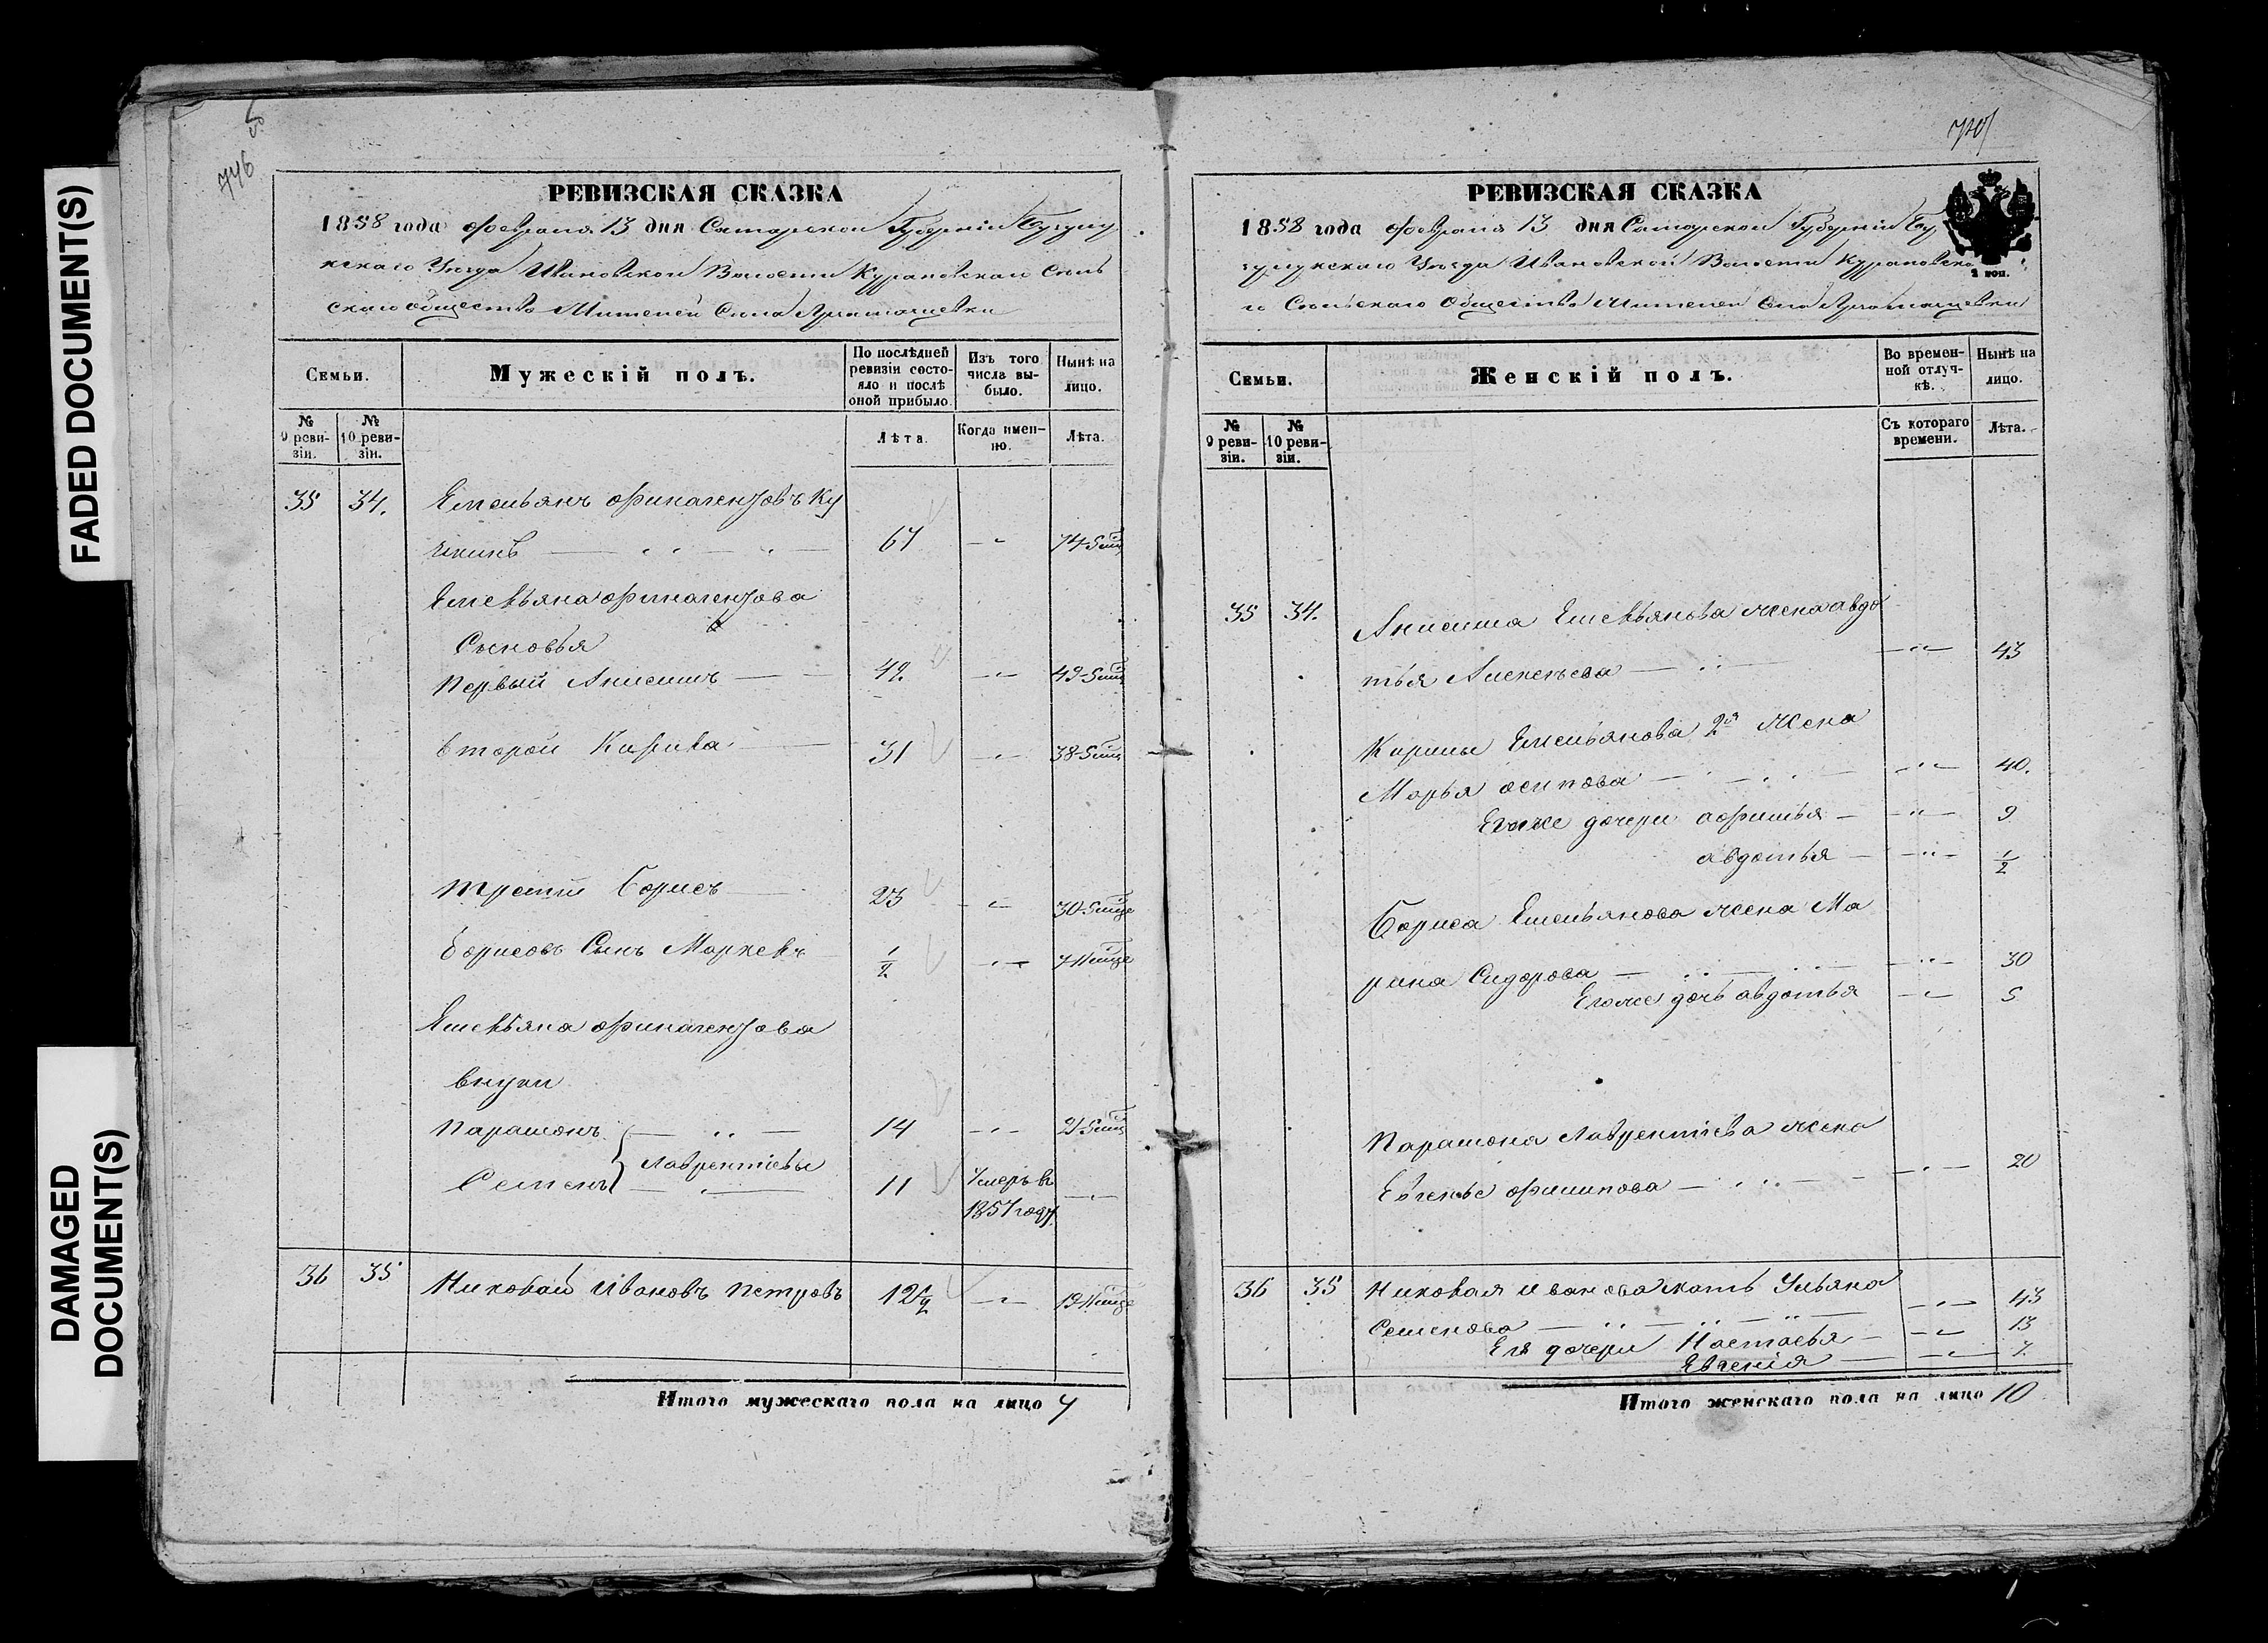 FADED DOCUMENT(S)
DAMAGED
DOCUMENT(S)
746
РЕВИЗСКАЯ СКАЗКА
1858 года февраля 13 дня Самарской Губерніи Бугуру
скаго Уезда Ивановской Волости Курановскаго Сель
скаго общества Жителей Села
Семьи.
Мужескій полъ.
По послѣдней ревизіи состояло и послѣ оной прибыло.
Изъ того числа выбыло.
Нынѣ на лицо.
№ 9 ревизіи.
№ 10 ревизіи.
Лѣта.
Когда именно.
Лѣта.
35 34. Емельянъ Ку
67 74
Емельяна
Сыновья
Первый Анисимъ 42 49
второй Кирила 31 38
третій Борисъ 23 30
Борисовъ Сынъ Маркелъ 1/2 7
Емельяна
внуки
Парамонъ 14 21
Лаврентіевы
Семенъ 11 Умеръ въ
1857 году
36 35 Николай Ивановъ Петровъ 12 1/2 19
Итого мужескаго пола на лицо 7
РЕВИЗСКАЯ СКАЗКА
1858 года февраля 13 дня Самарской Губерніи Бу
Уезда Ивановской Волости Курановска
го Сельскаго Общества Жителей Села
Семьи.
Женскій полъ.
Во временной отлучкѣ.
Нынѣ на лицо.
№ 9 ревизіи.
№ 10 ревизіи.
Съ котораго времени.
Лѣта.
35 34. Анисима Емельянова жена авдо
тья Алексеева 43
Кирилы Емельянова 2я Жена
Марья осипова 40.
Егоже дочери афимья 9
авдотья 1/2
Бориса Емельянова жена Ма
рина Сидорова 30
Егоже дочь авдотья 5
Парамона Лаврентіева жена
Евгенье филипова 20
36 35 Николая иванова мать Ульяна
Семенова 43
Ея дочери Настасья 13
Евгенія 7.
Итого женскаго пола на лицо 10